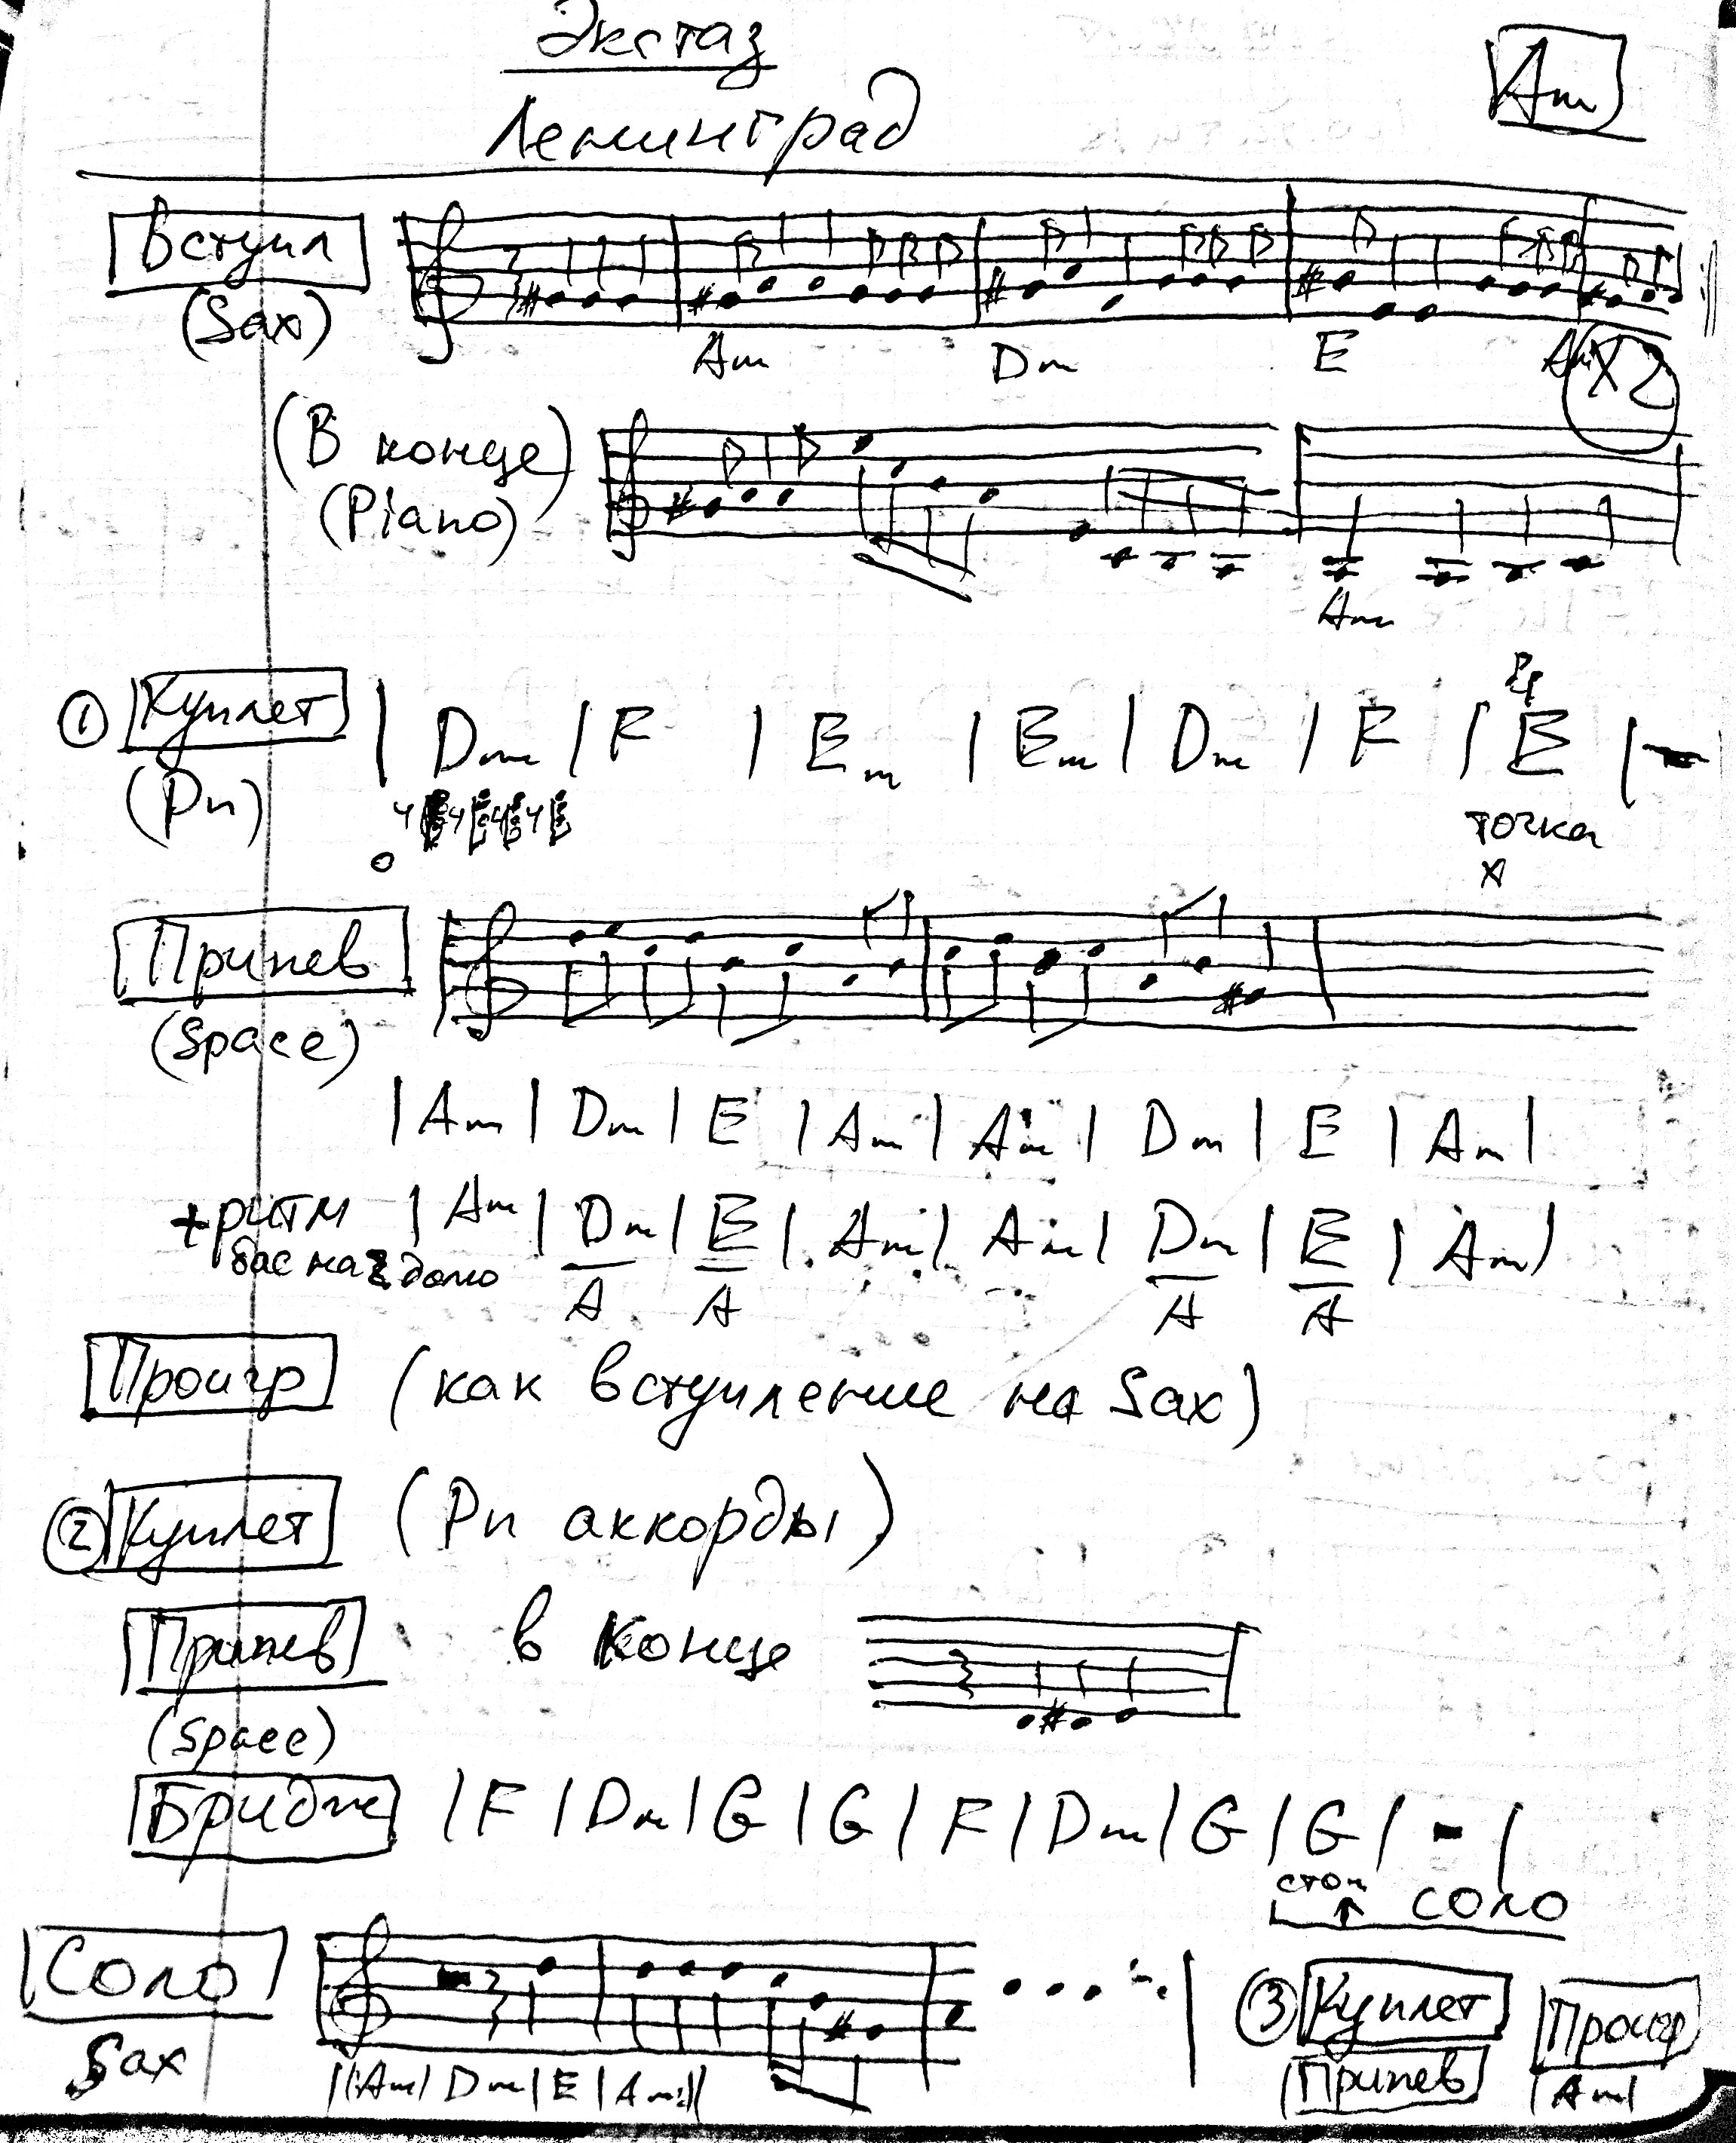 Экстаз
Am
Ленинград
Вступл
(Sax)
Am Dm E Am X2
(В конце)
(Piano)
Am
① Куплет | Dm | F | Em | Em | Dm | F | E | -
(Pn)
точка
x
Припев
(Space)
| Am | Dm | E | Am | Am | Dm | E | Am |
+ритм | Am | Dm/A | E/A | Am | Am | Dm/A | E/A | Am |
бас на 2 долю
Проигр (как вступление на Sax)
② Куплет (Pn аккорды)
Припев в конце
(Space)
Бридж | F | Dm | G | G | F | Dm | G | G | - |
стоп соло
Соло
Sax
||:Am| Dm | E | Am:||
③ Куплет Проигр
Припев | Am |